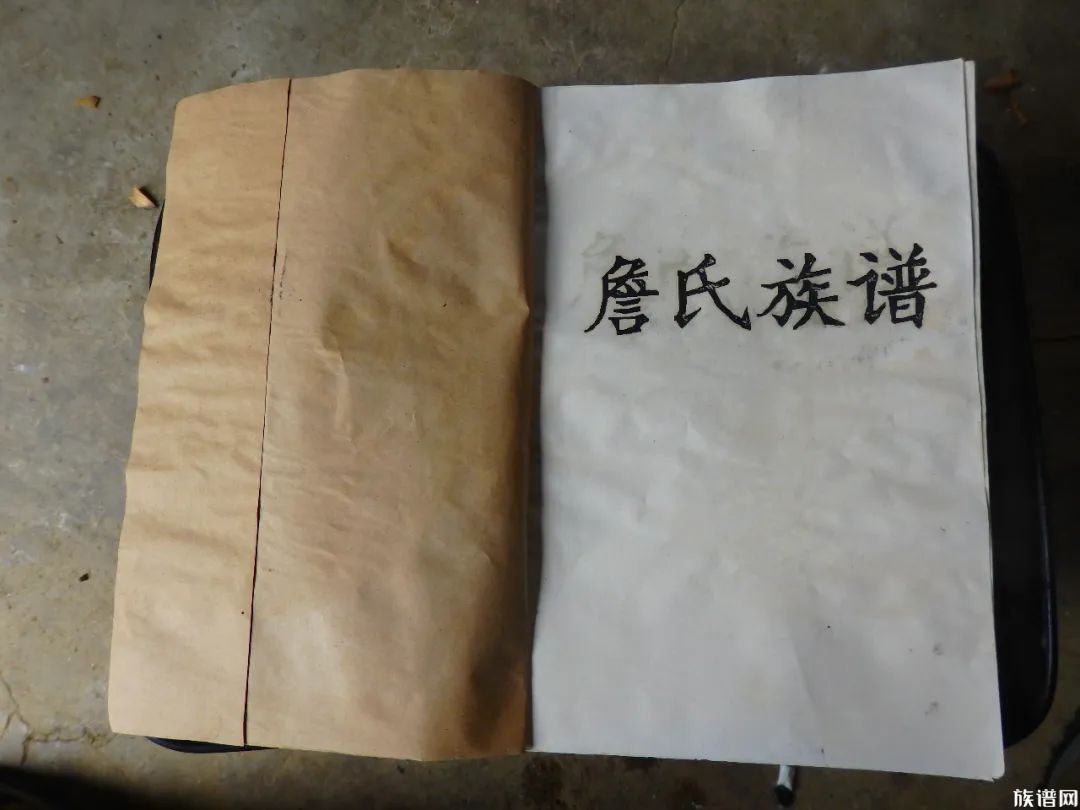 詹氏族谱
族谱网